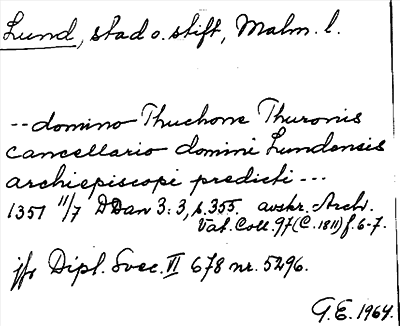 Lund, stad o. stift, Malm. l.
-- domino Thuchone Thuronis
cancellario domini Lundensis
archiepiscopi predicti ---
1351 11/7 DDan 3:3, s. 355. avskr. Arch.
Vat. Coll. 97 (C. 1811) f. 6-7.
jfr Dipl. Svec. VI 678 nr. 5296.
G.E. 1964.